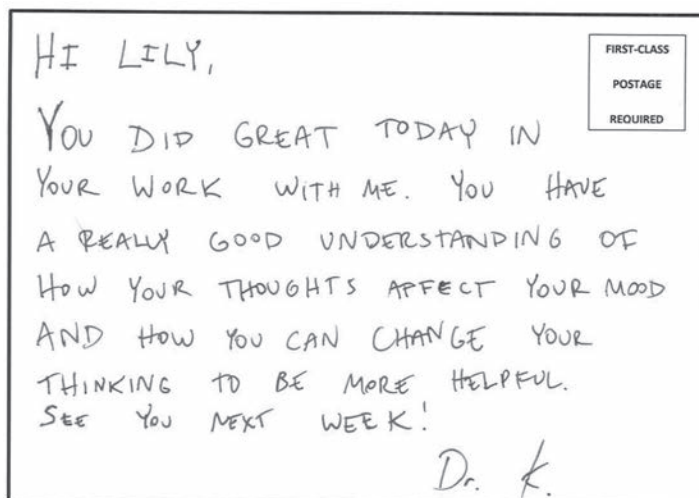 HI LILY,
FIRST-CLASS
POSTAGE
REQUIRED
YOU DID GREAT TODAY IN
YOUR WORK WITH ME. YOU HAVE
A REALLY GOOD UNDERSTANDING OF
HOW YOUR THOUGHTS AFFECT YOUR MOOD
AND HOW YOU CAN CHANGE YOUR
THINKING TO BE MORE HELPFUL.
SEE YOU NEXT WEEK!
Dr. K.